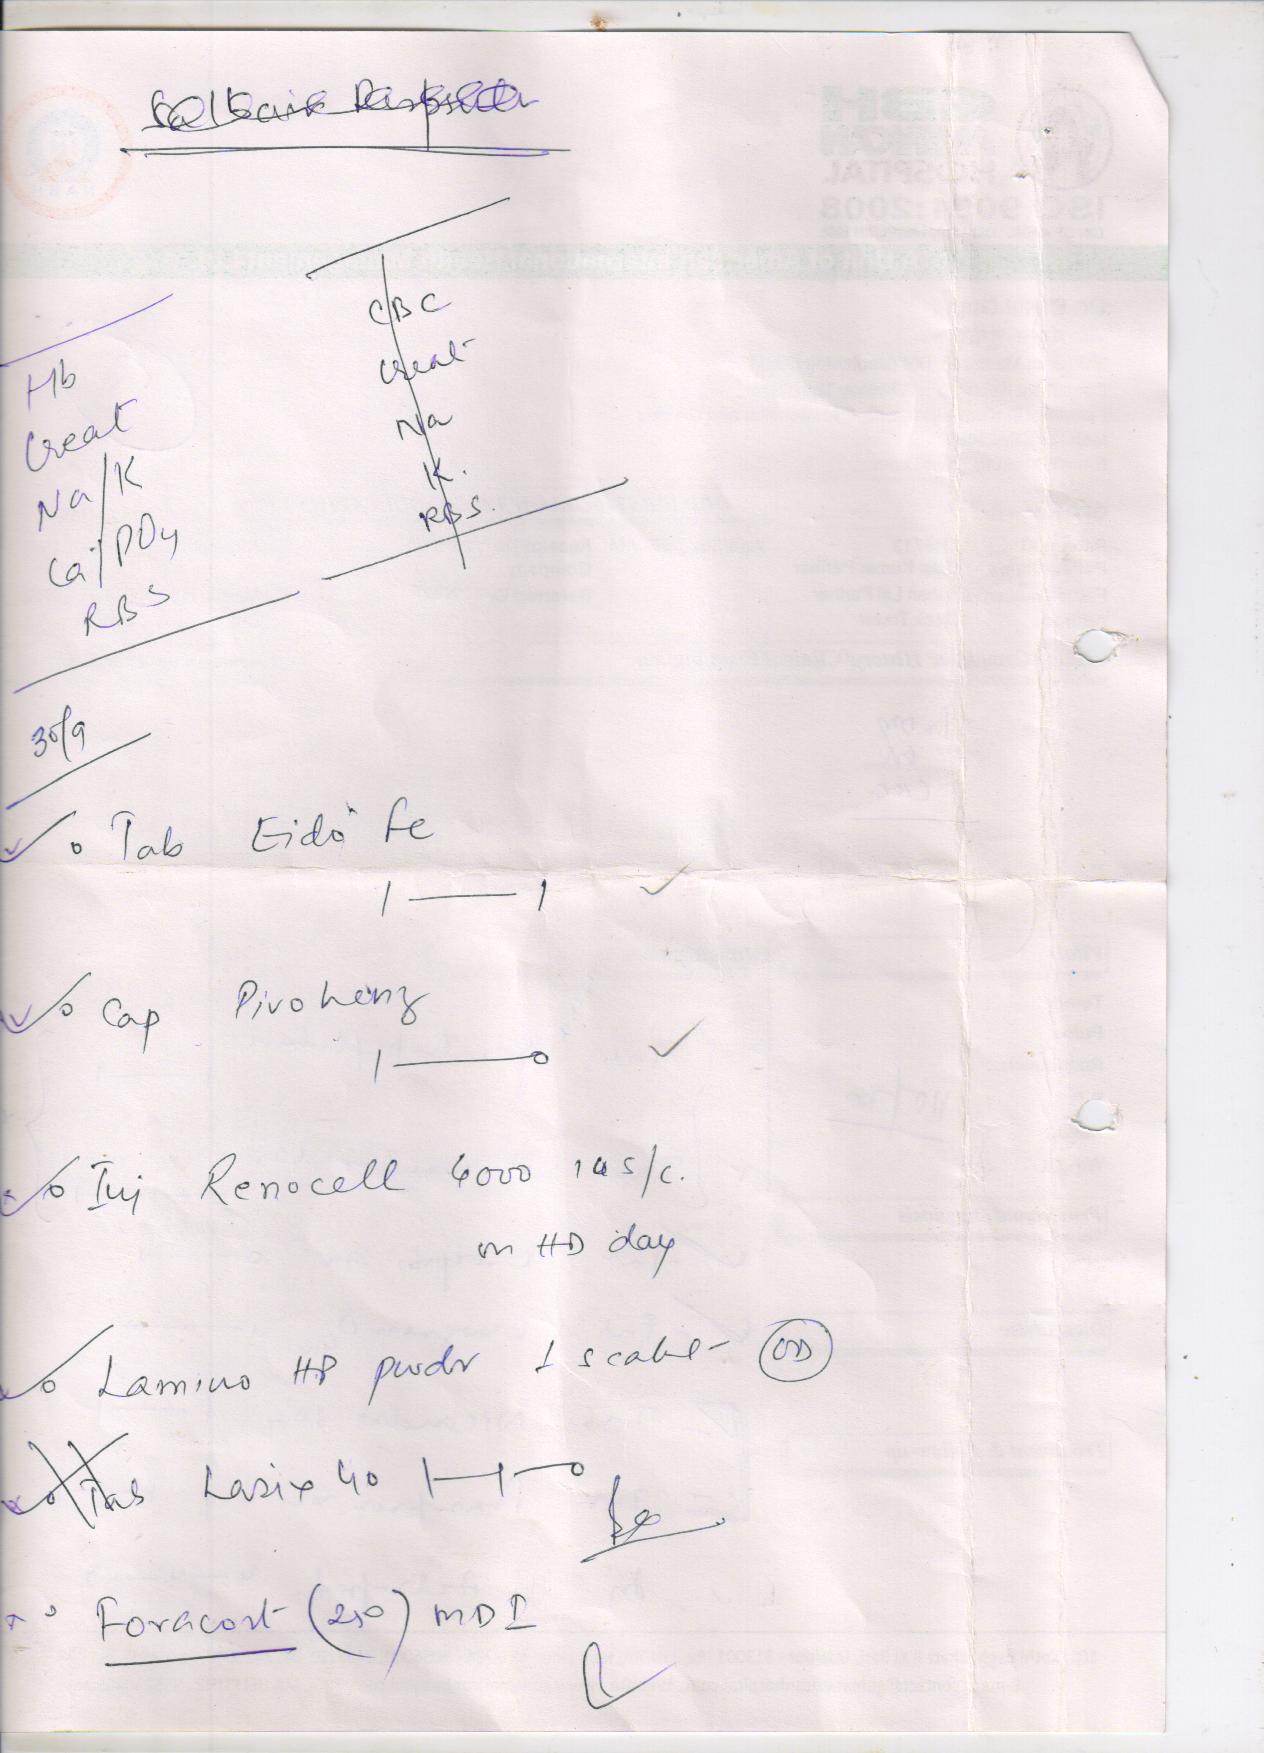 Hb
Creat
Na/K
Ca/PO4
RBS
CBC
Creat
Na
K.
RBS.
30/9
Tab Eido Fe
1 — 1
Cap Pivohenz
1 — 0
Inj Renocell 4000 iu s/c.
on HD day
Lamino HP powdr 1 scale OD
Tab Lasix 40 1—1—0
Foracort (250) MDI